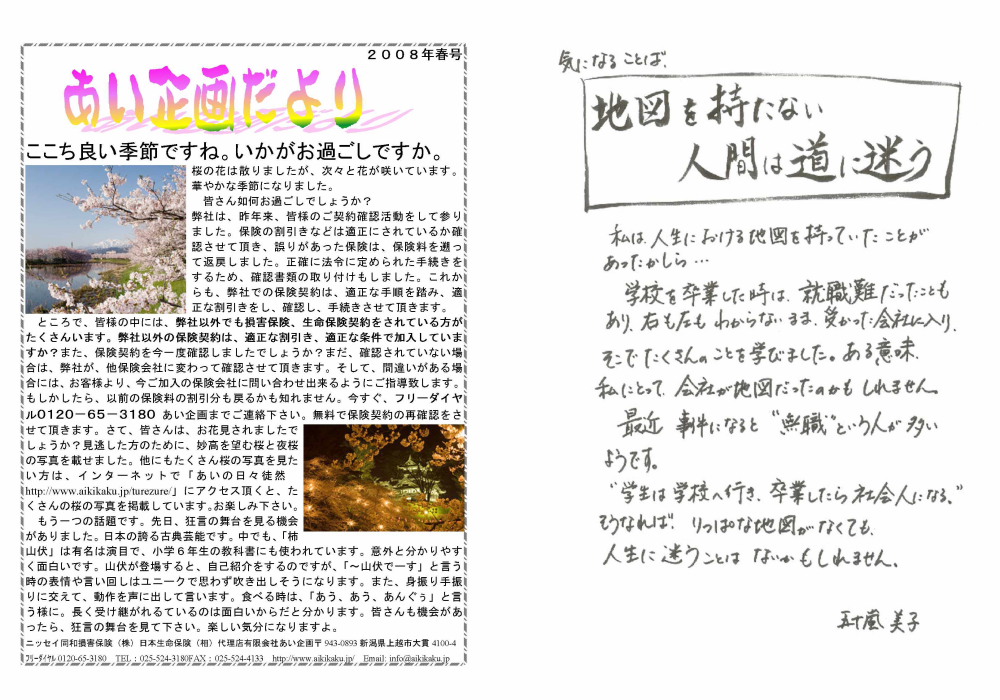 2008年春号
あい企画だより
ここち良い季節ですね。いかがお過ごしですか。
桜の花は散りましたが、次々と花が咲いています。
華やかな季節になりました。
皆さん如何お過ごしでしょうか？
弊社は、昨年来、皆様のご契約確認活動をして参り
ました。保険の割引きなどは適正にされているか確
認させて頂き、誤りがあった保険は、保険料を遡っ
て返戻しました。正確に法令に定められた手続きを
するため、確認書類の取り付けもしました。これか
らも、弊社での保険契約は、適正な手順を踏み、適
正な割引きをし、確認し、手続きさせて頂きます。
ところで、皆様の中には、弊社以外でも損害保険、生命保険契約をされている方が
たくさんいます。弊社以外の保険契約は、適正な割引き、適正な条件で加入していま
すか？また、保険契約を今一度確認しましたでしょうか？まだ、確認されていない場
合は、弊社が、他保険会社に変わって確認させて頂きます。そして、間違いがある場
合には、お客様より、今ご加入の保険会社に問い合わせ出来るようにご指導致します。
もしかしたら、以前の保険料の割引分も戻るかも知れません。今すぐ、フリーダイヤ
ル0120－65－3180 あい企画までご連絡下さい。無料で保険契約の再確認をさ
せて頂きます。さて、皆さんは、お花見されましたで
しょうか？見逃した方のために、妙高を望む桜と夜桜
の写真を載せました。他にもたくさん桜の写真を見た
い方は、インターネットで「あいの日々徒然
http://www.aikikaku.jp/turezure/」にアクセス頂くと、た
くさんの桜の写真を掲載しています。お楽しみ下さい。
もう一つの話題です。先日、狂言の舞台を見る機会
がありました。日本の誇る古典芸能です。中でも、「柿
山伏」は有名は演目で、小学６年生の教科書にも使われています。意外と分かりやす
く面白いです。山伏が登場すると、自己紹介をするのですが、「～山伏でーす」と言う
時の表情や言い回しはユニークで思わず吹き出しそうになります。また、身振り手振
りに交えて、動作を声に出して言います。食べる時は、「あう、あう、あんぐぅ」と言
う様に。長く受け継がれるているのは面白いからだと分かります。皆さんも機会があ
ったら、狂言の舞台を見て下さい。楽しい気分になりますよ。
ニッセイ同和損害保険（株）日本生命保険（相）代理店有限会社あい企画〒943-0893 新潟県上越市大貫 4100-4
ﾌﾘｰﾀﾞｲﾔﾙ 0120-65-3180 TEL：025-524-3180FAX：025-524-4133 http://www.aikikaku.jp/ Email: info@aikikaku.jp
気になることば.
地図を持たない
人間は道に迷う
私は、人生における地図を持っていたことが
あったかしら…
学校を卒業した時は、就職難だったことも
あり、右も左もわからないまま、受かった会社に入り、
そこでたくさんのことを学びました。ある意味、
私にとって、会社が地図だったのかもしれません。
最近 事件になると“無職”という人が多い
ようです。
“学生は学校へ行き、卒業したら社会人になる、”
そうなれば、りっぱな地図がなくても、
人生に迷うことはないかもしれません。
五十嵐 美子